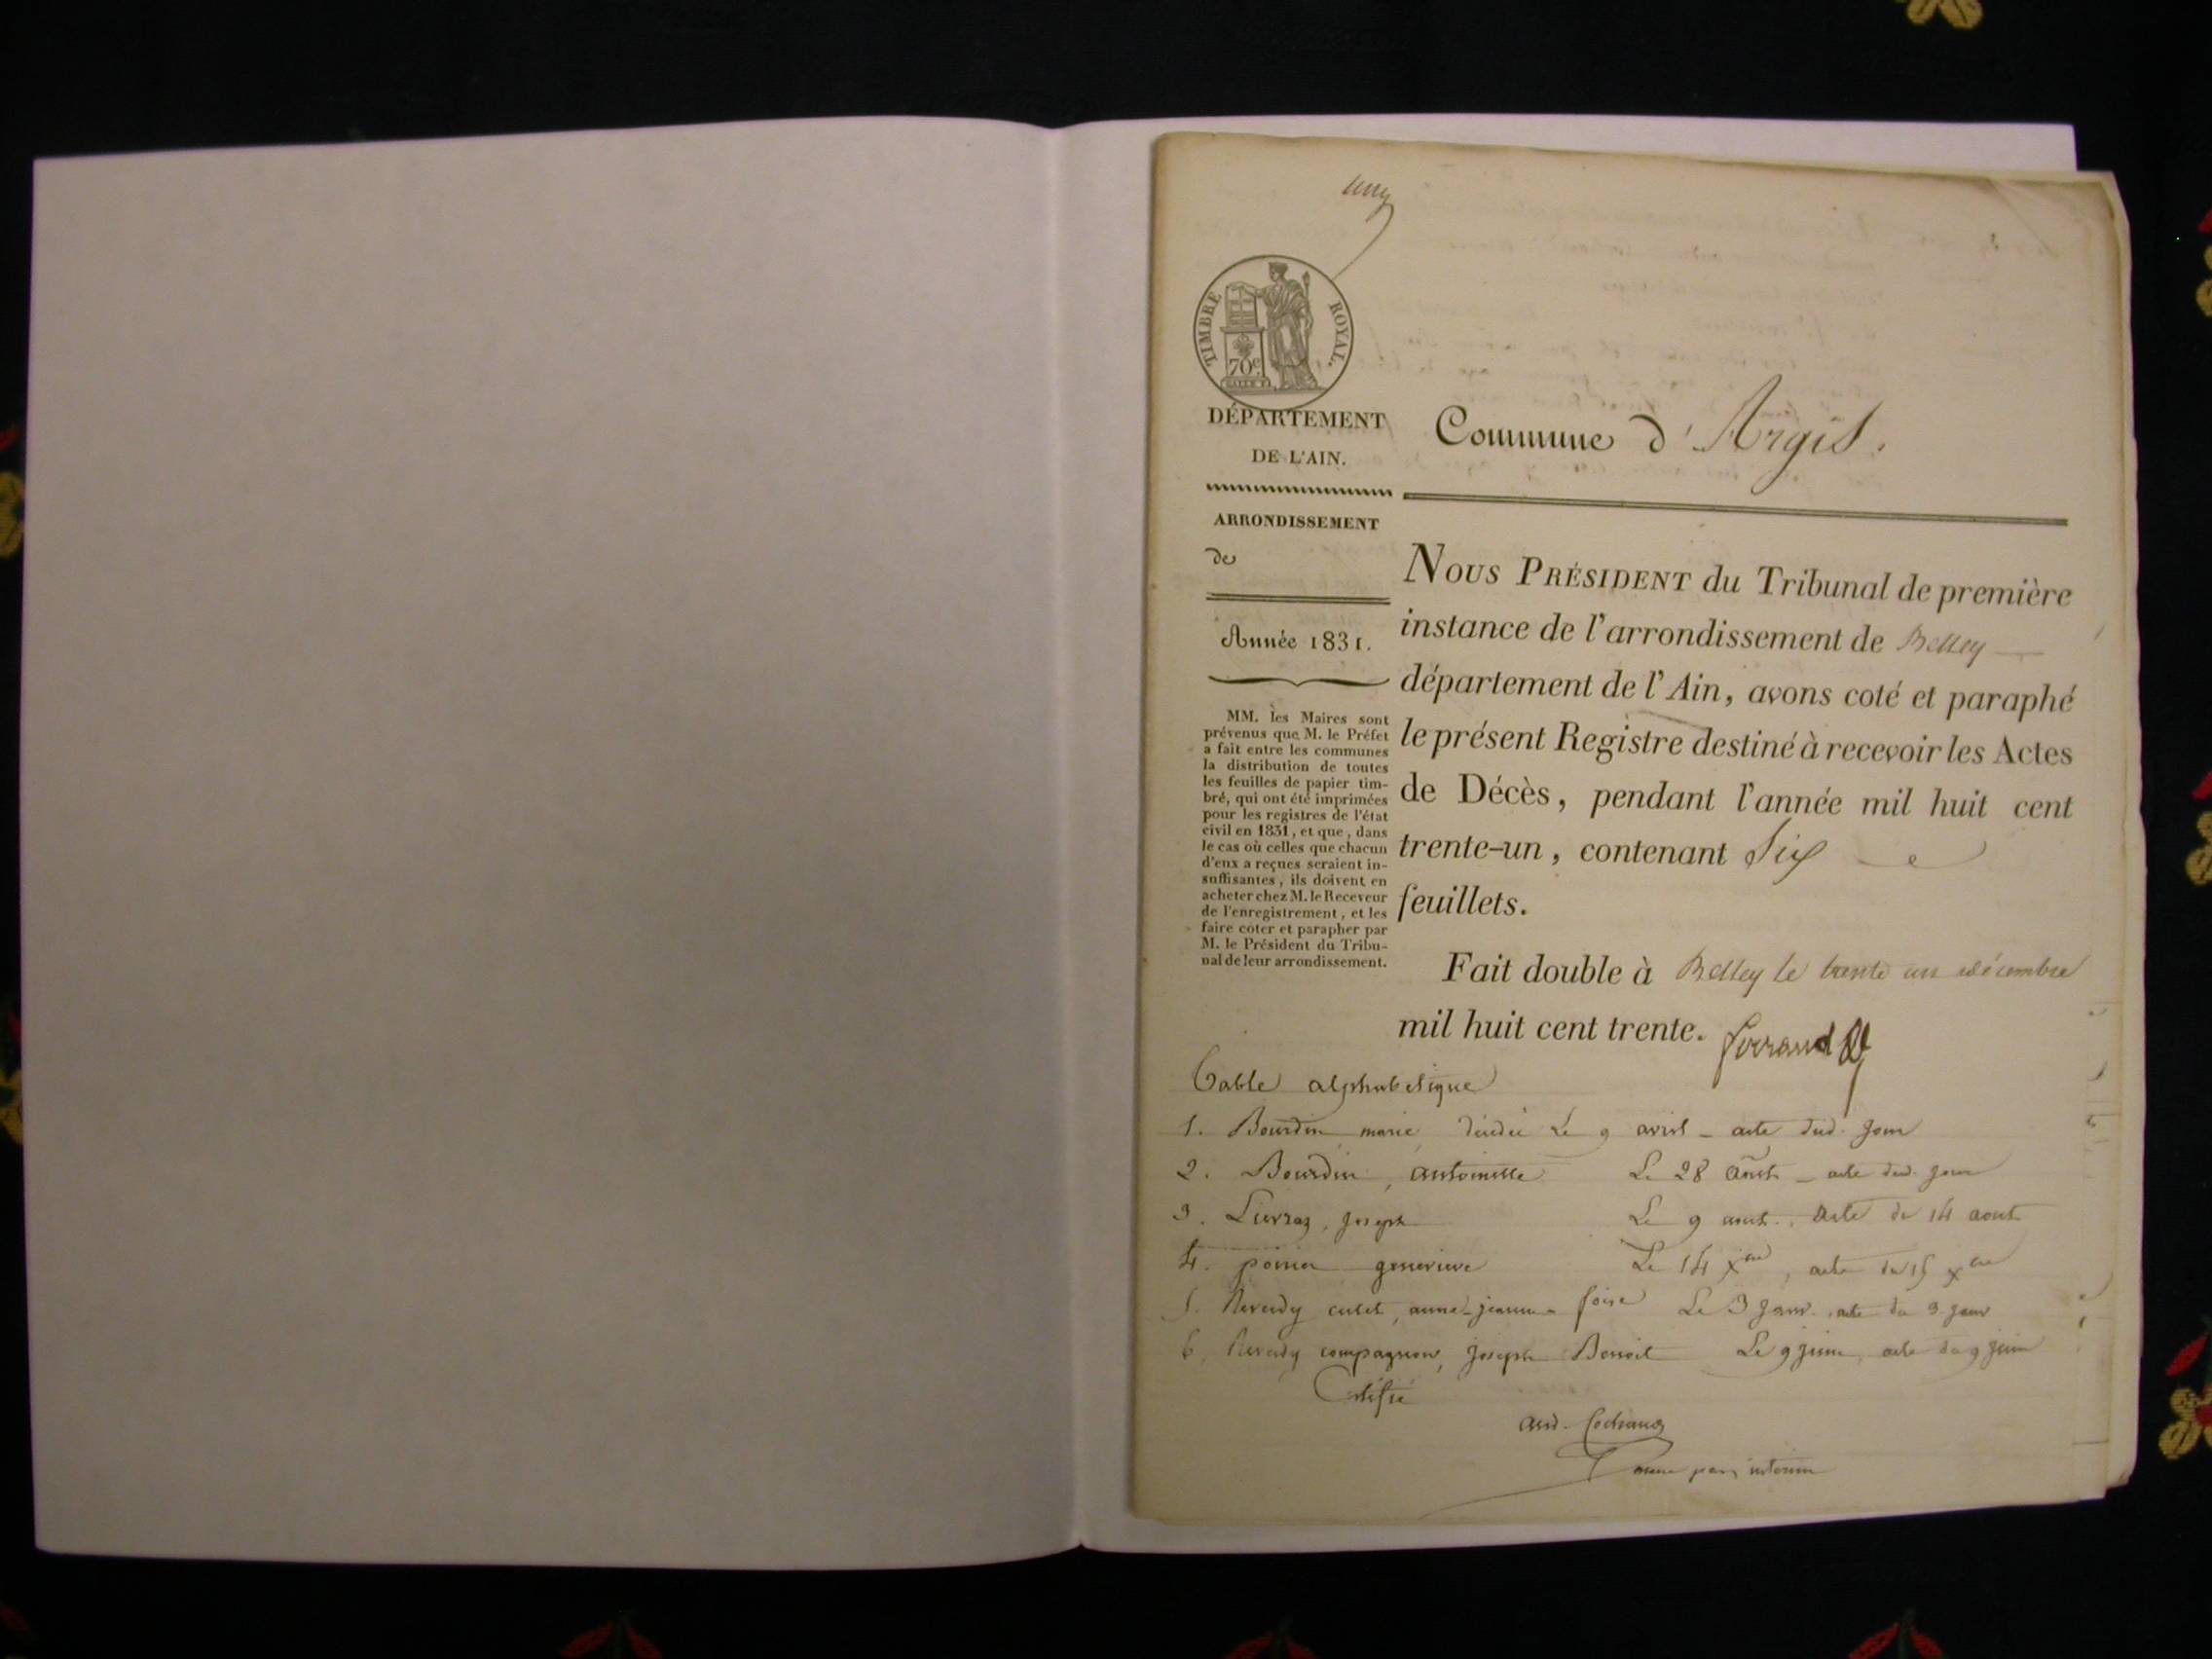 TIMBRE ROYAL.
70c.
DÉPARTEMENT
DE L'AIN.
ARRONDISSEMENT
de
Année 1831.
MM. les Maires sont
prévenus que M. le Préfet
a fait entre les communes
la distribution de toutes
les feuilles de papier tim-
bré, qui ont été imprimées
pour les registres de l'état
civil en 1831, et que, dans
le cas où celles que chacun
d'eux a reçues seraient in-
suffisantes, ils doivent en
acheter chez M. le Receveur
de l'enregistrement, et les
faire coter et parapher par
M. le Président du Tribu-
nal de leur arrondissement.
Commune d'Argis.
NOUS PRÉSIDENT du Tribunal de première
instance de l'arrondissement de Belley
département de l'Ain, avons coté et paraphé
le présent Registre destiné à recevoir les Actes
de Décès, pendant l'année mil huit cent
trente-un, contenant Six
feuillets.
Fait double à Belley le trente un décembre
mil huit cent trente. ferrand
Table alphabetique
1. Bourdin marie décédée Le 9 avril - acte dud. Jour
2. Bourdin, antoinette Le 28 Août - acte dud. jour
3. Lievraz, joseph Le 9 aout, acte du 14 aout
4. genevieve Le 14 Xbre, acte du 15 xbre
5. Reverdy cutet, anne-jeanne-foise Le 3 janv. acte du 3 janv
6. Reverdy compagnon, joseph Benoit Le 9 juin, acte du 9 juin
Certifié
maire par interim